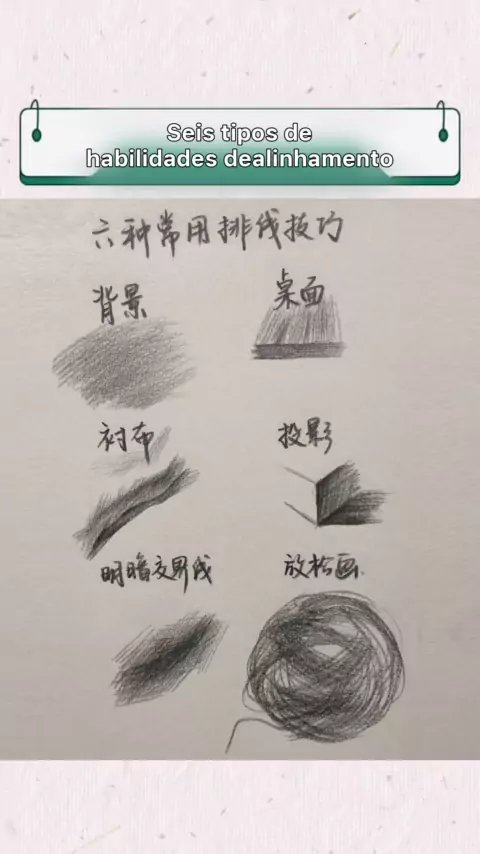 Seis tipos de
habilidades dealinhamento
六种常用排线技巧
背景
桌面
衬布
投影
明暗交界线
放松画